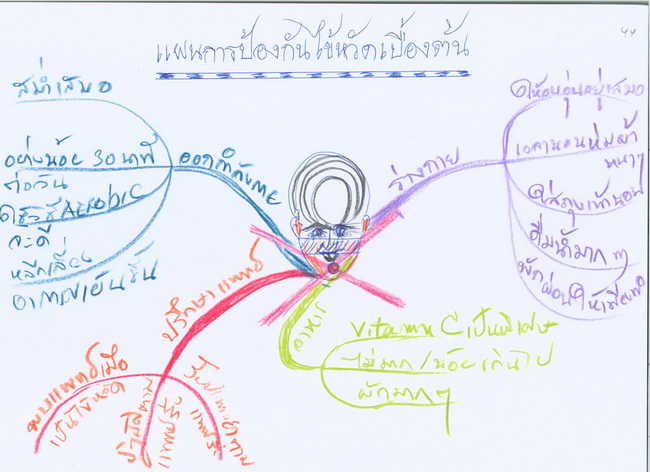 แผนการป้องกันไข้หวัดเบื้องต้น
ออกกำลังกาย
สม่ำเสมอ
อย่างน้อย 30 นาที
ต่อวัน
ใช้วิธี Aerobic
จะดี
หลีกเลี่ยง
อากาศเย็นชื้น
ร่างกาย
ให้อบอุ่นอยู่เสมอ
เวลานอนห่มผ้า
หนาๆ
ใส่ถุงเท้านอน
ดื่มน้ำมากๆ
พักผ่อนให้เพียงพอ
อาหาร
Vitamin C เป็นพิเศษ
ไม่มาก/น้อยเกินไป
ผักมากๆ
ปรึกษาแพทย์
พบแพทย์เมื่อ
เป็นไข้หวัด
ตาม
แพทย์
รับประทานยาตาม
แพทย์